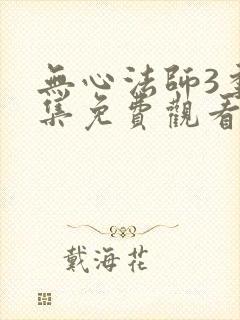 無心法師3
集免費觀看
戴海花